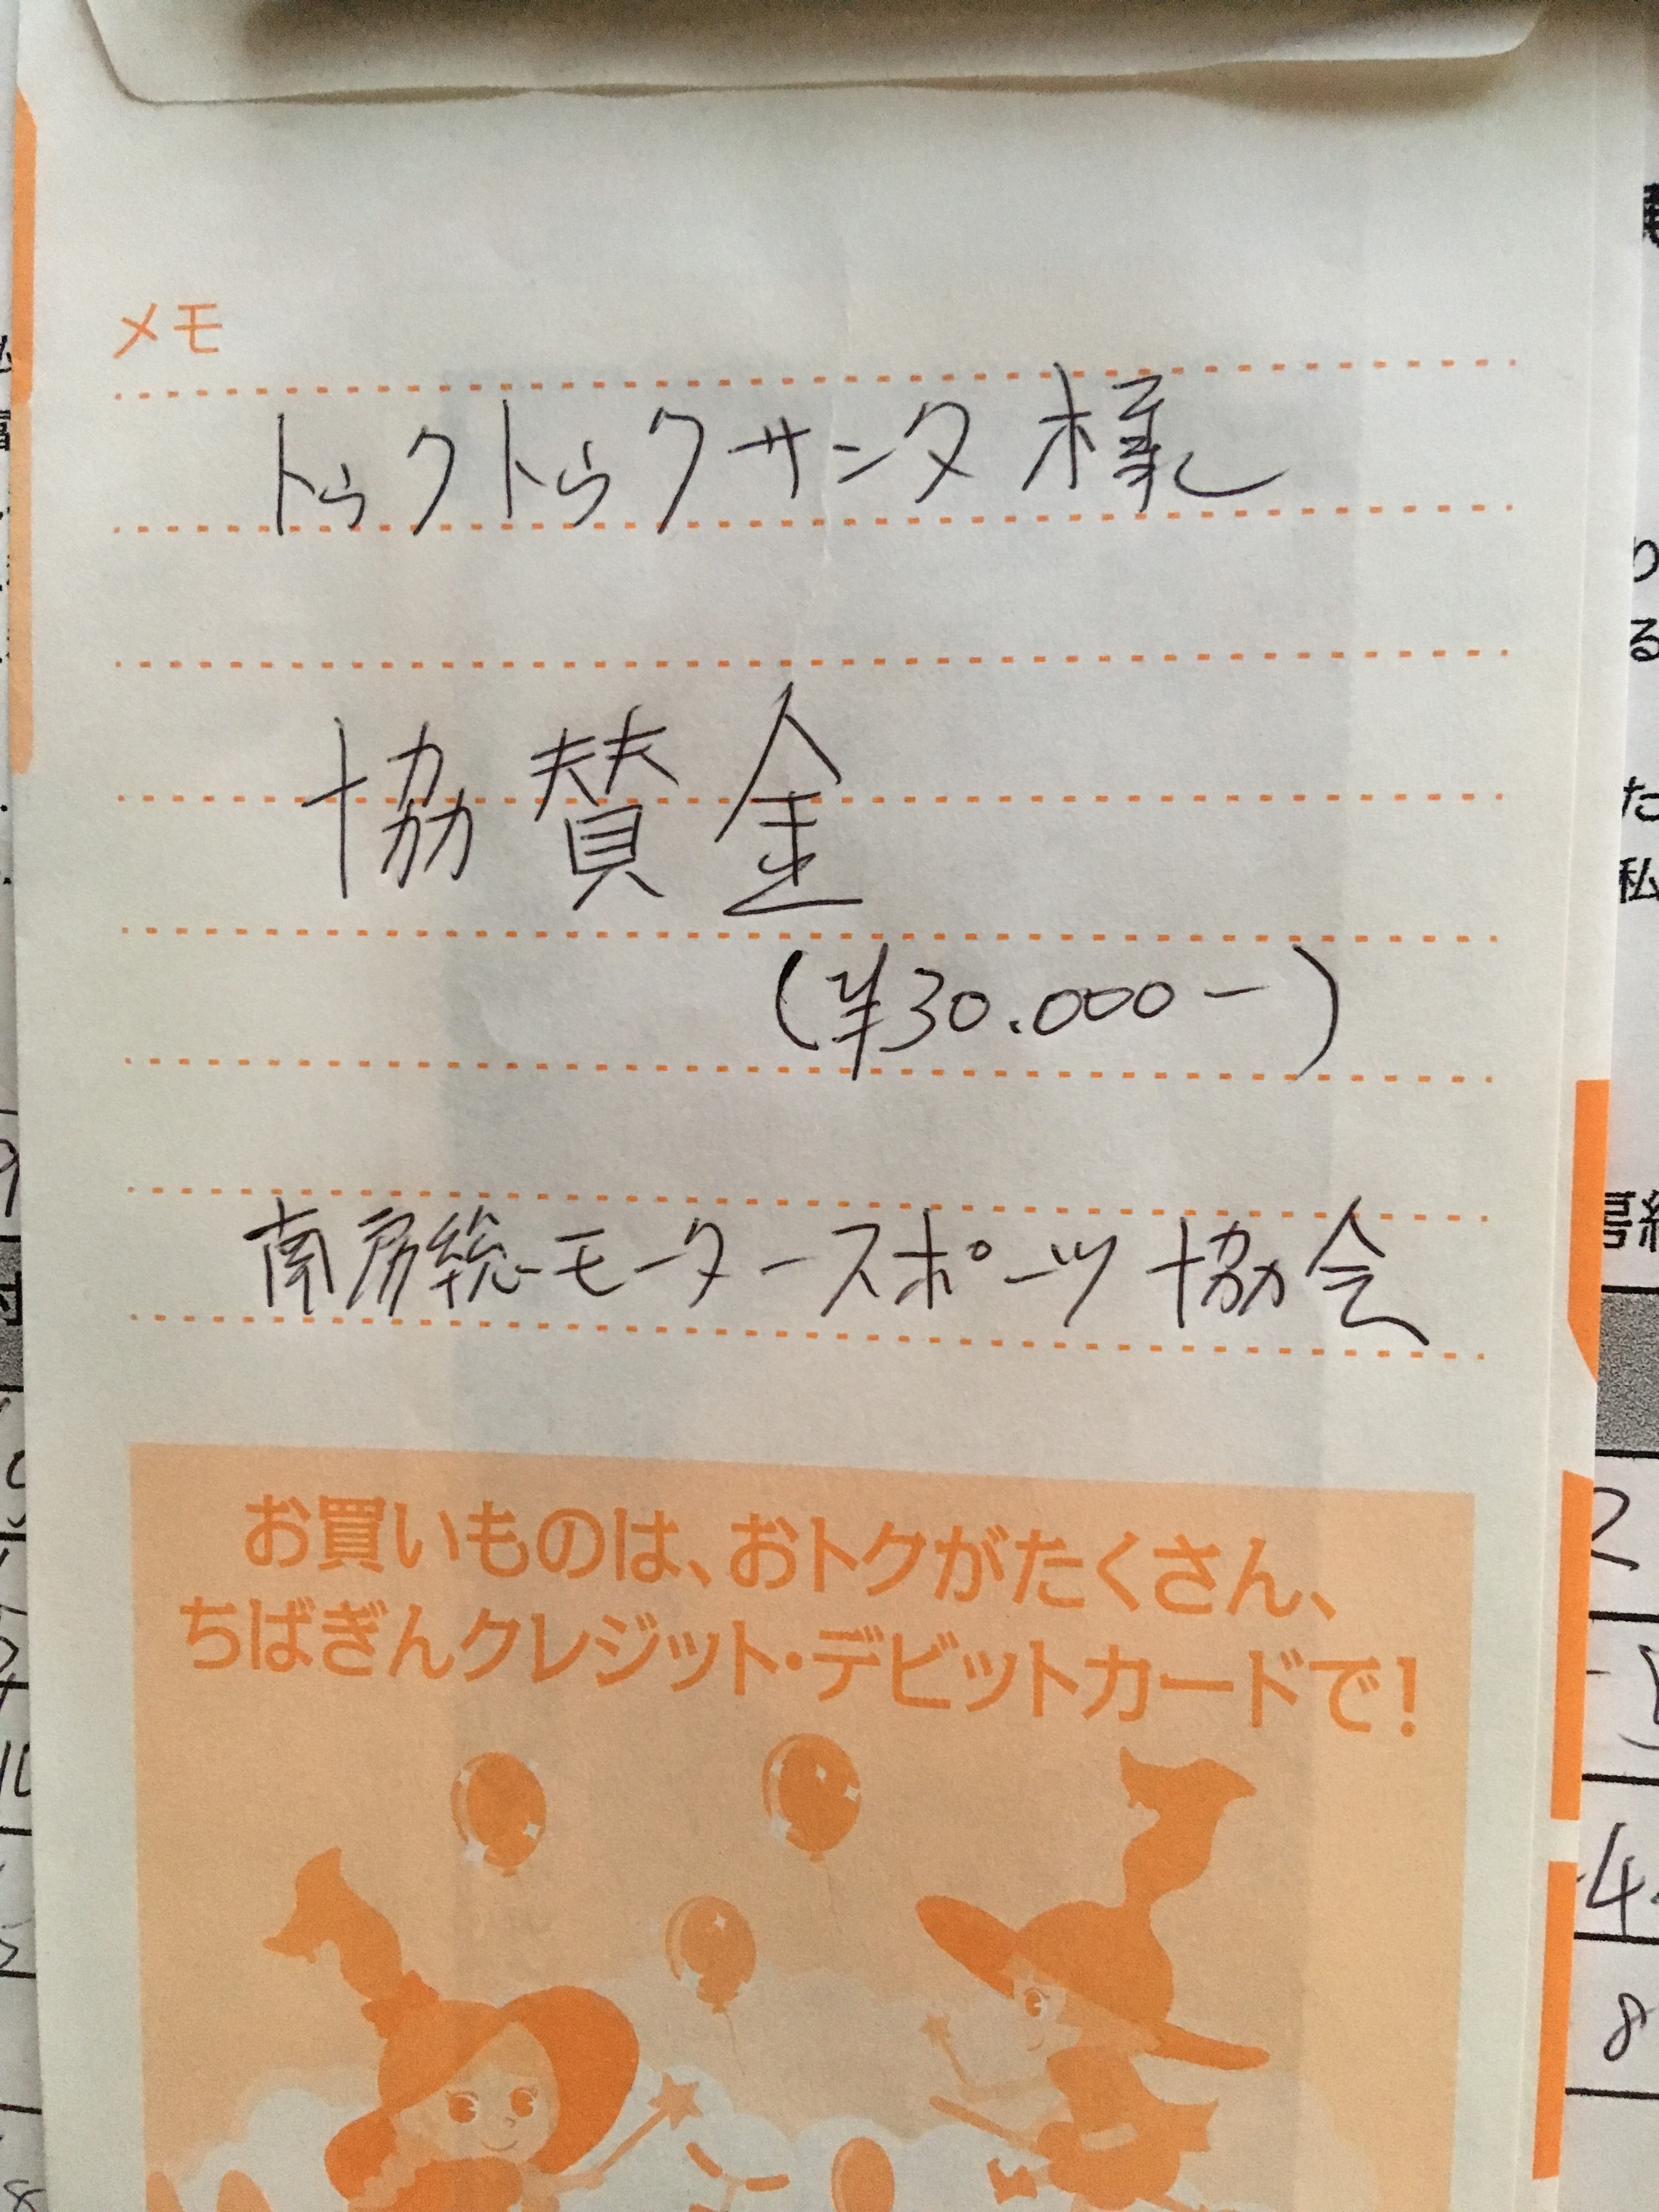 メモ
トゥクトゥクサンタ様
協賛金
(¥30.000-)
南房総モータースポーツ協会
お買いものは、おトクがたくさん、
ちばぎんクレジット・デビットカードで!
り
る
た
私
房総
2
4
8